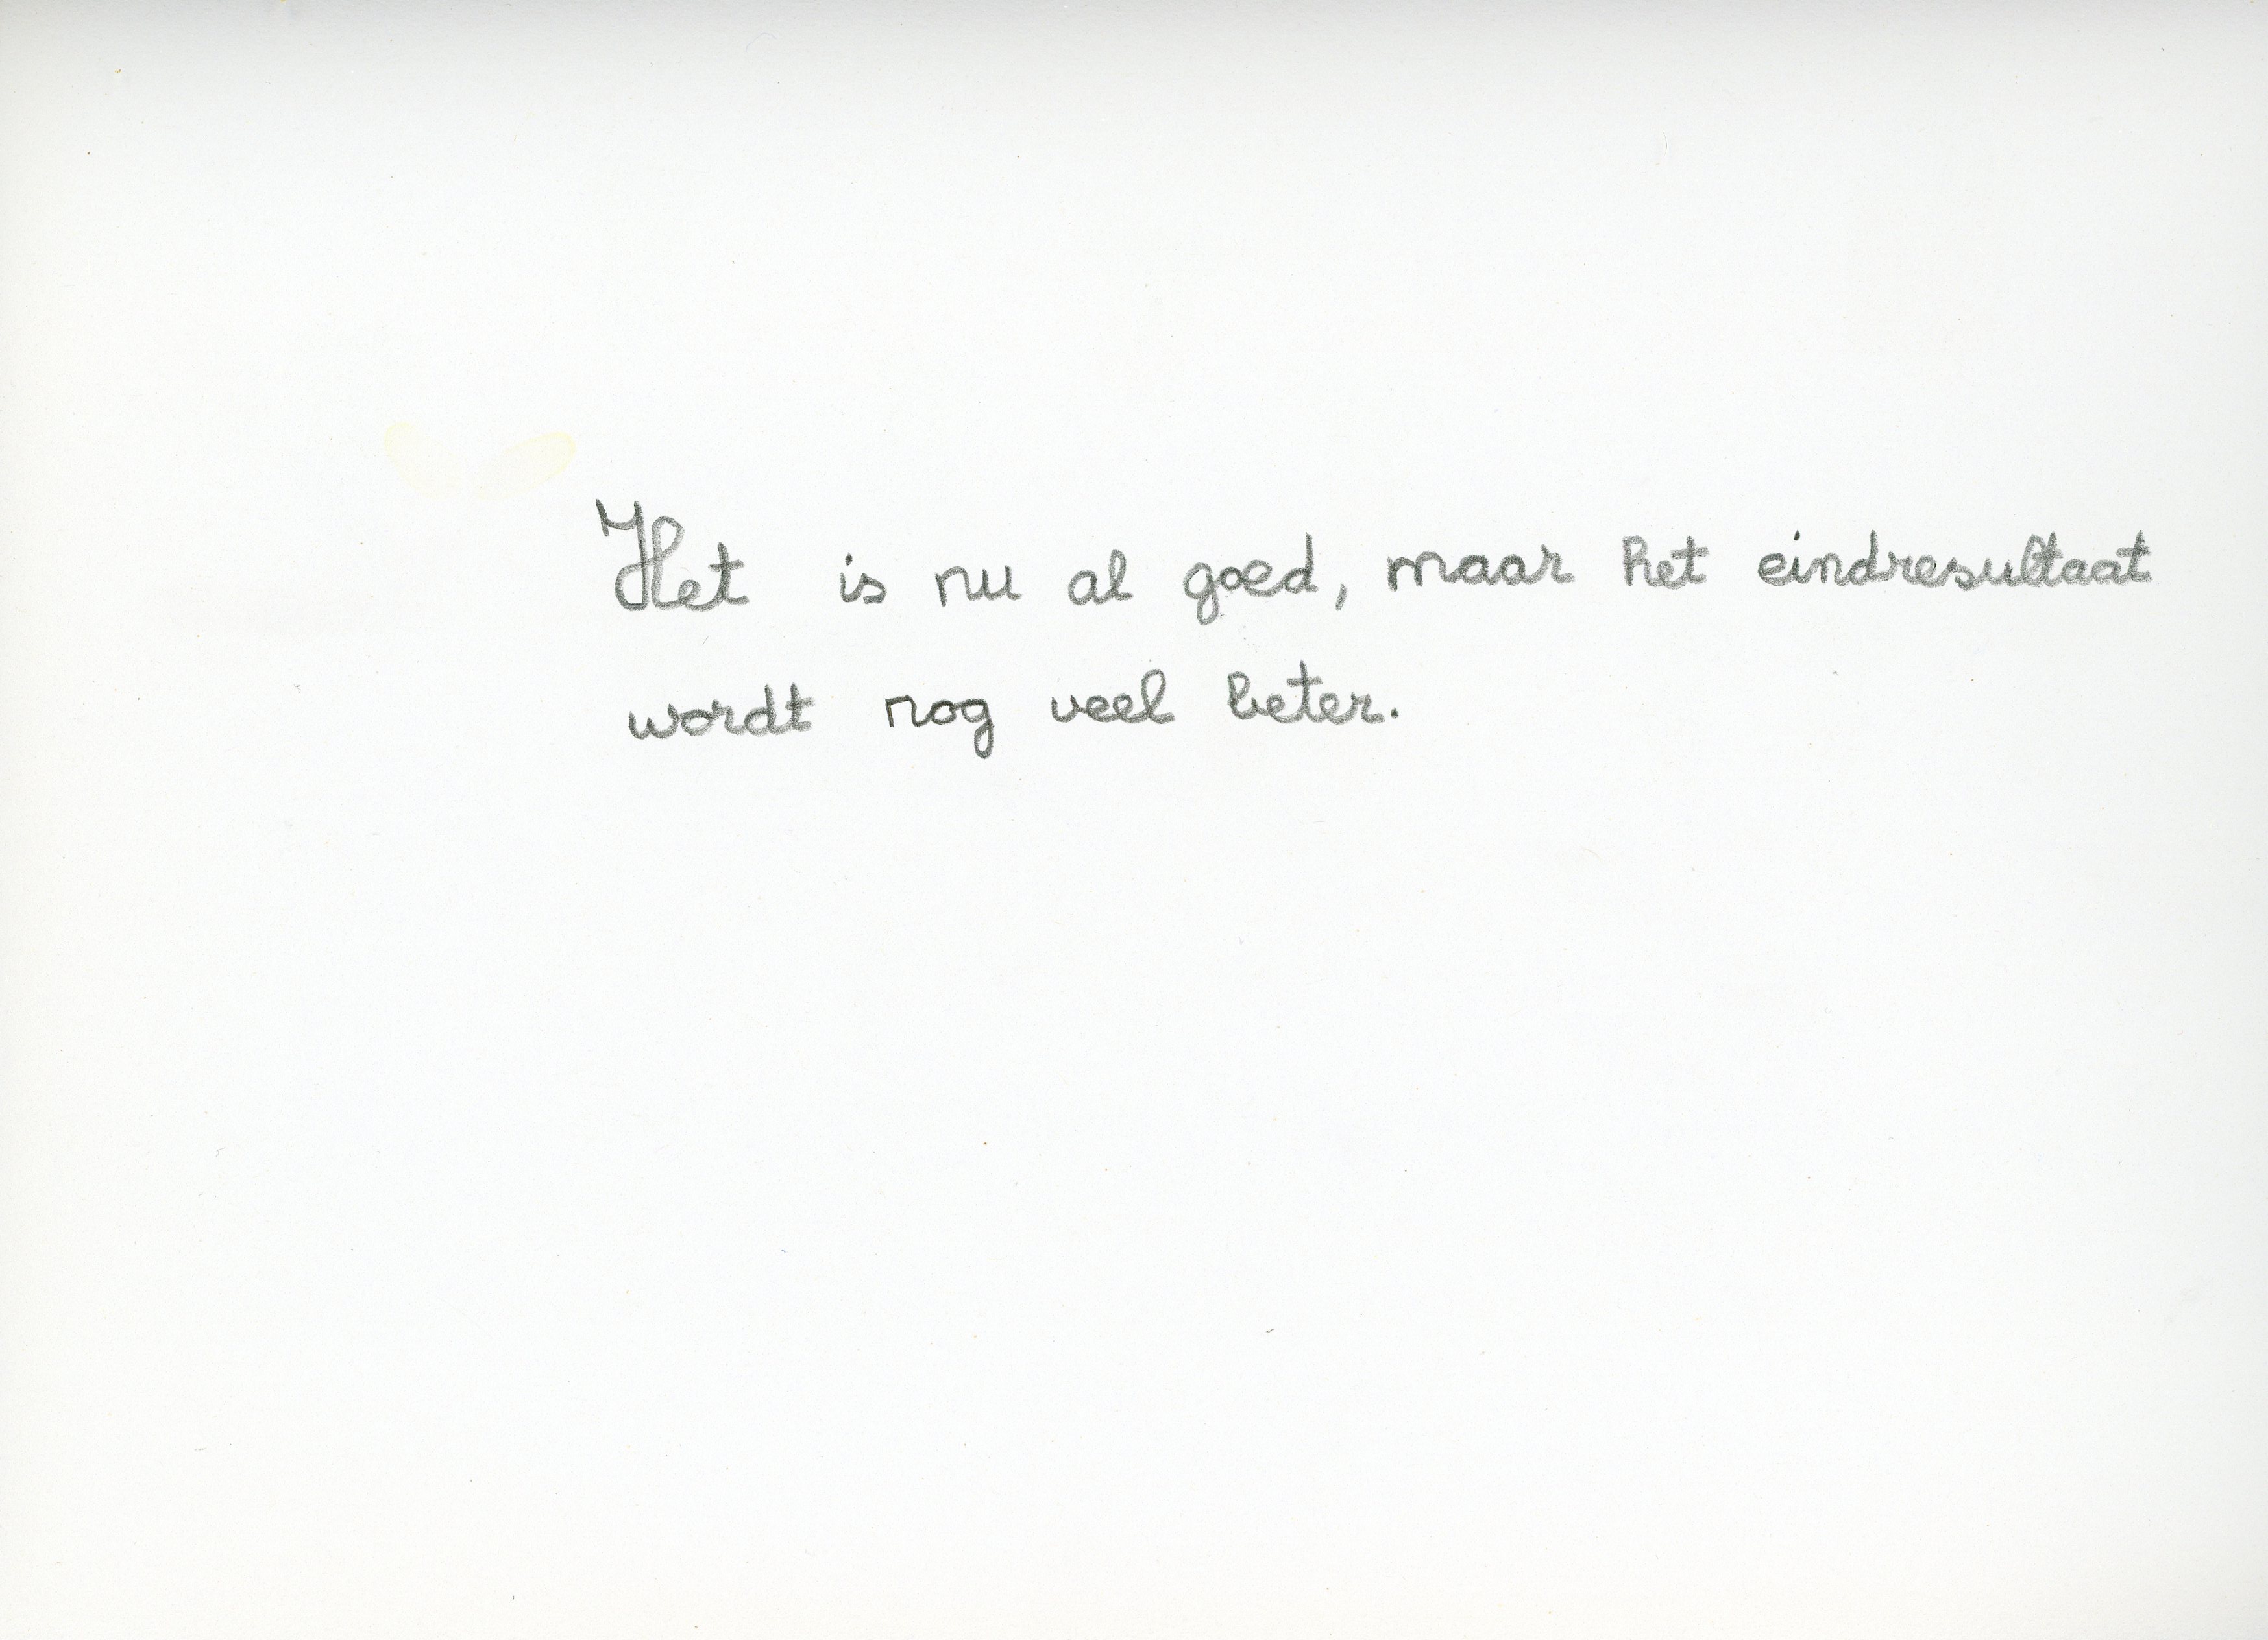 Het is nu al goed, maar het eindresultaat
wordt nog veel beter.